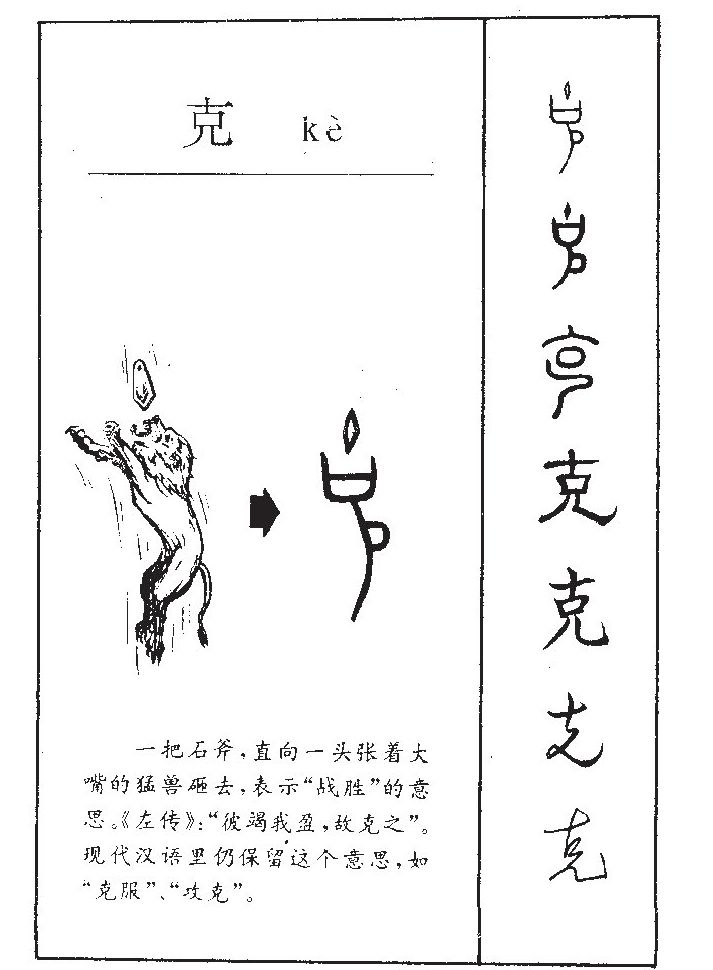 克 kè
一把石斧，直向一头张着大
嘴的猛兽砸去，表示“战胜”的意
思。《左传》：“彼竭我盈，故克之”。
现代汉语里仍保留这个意思，如
“克服”、“攻克”。
克
克
克
克
克
克
克
克